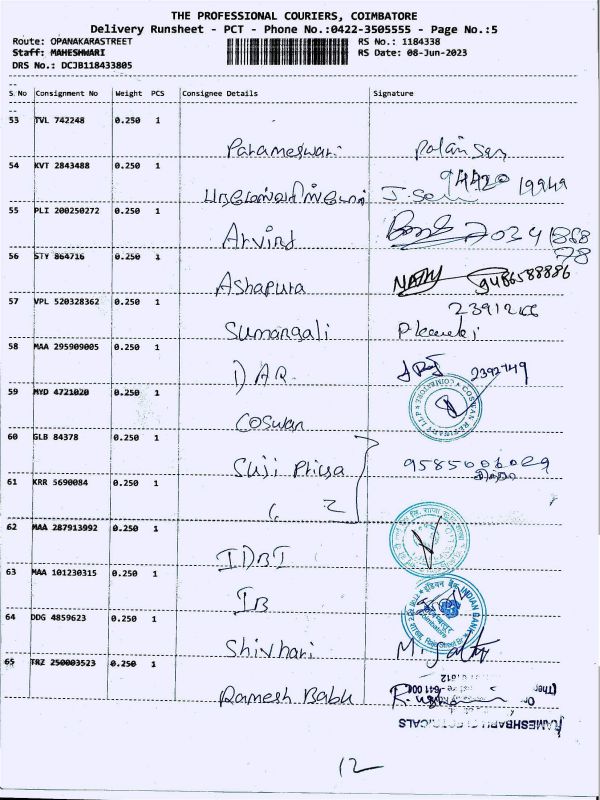 THE PROFESSIONAL COURIERS, COIMBATORE
Delivery Runsheet - PCT - Phone No.:0422-3505555 - Page No.:5
Route: OPANAKARASTREET RS No.: 1184338
Staff: MAHESHWARI RS Date: 08-Jun-2023
DRS No.: DCJB118433805
S.No Consignment No Weight PCS Consignee Details Signature
53 TVL 742248 0.250 1
Parameswari
54 KVT 2843488 0.250 1
94420 19949
J. Sel
55 PLI 200250272 0.250 1
Arvind 70341868
78
56 STY 864716 0.250 1
Ashapura 9486588886
57 VPL 520328362 0.250 1
Sumangali
58 MAA 295909005 0.250 1
DAR 2392749
59 MYD 4721020 0.250 1
COIMBATORE
Coswan
60 GLB 84378 0.250 1
Suji Priya 9585006029
61 KRR 5690084 0.250 1
2
62 MAA 287913992 0.250 1
IDBI
63 MAA 101230315 0.250 1
IB INDIAN BANK
Coimbatore
64 DDG 4859623 0.250 1
Shivhari
65 TRZ 250003523 0.250 1
Ramesh Babu
RAMESHBABU ELECTRICALS
12